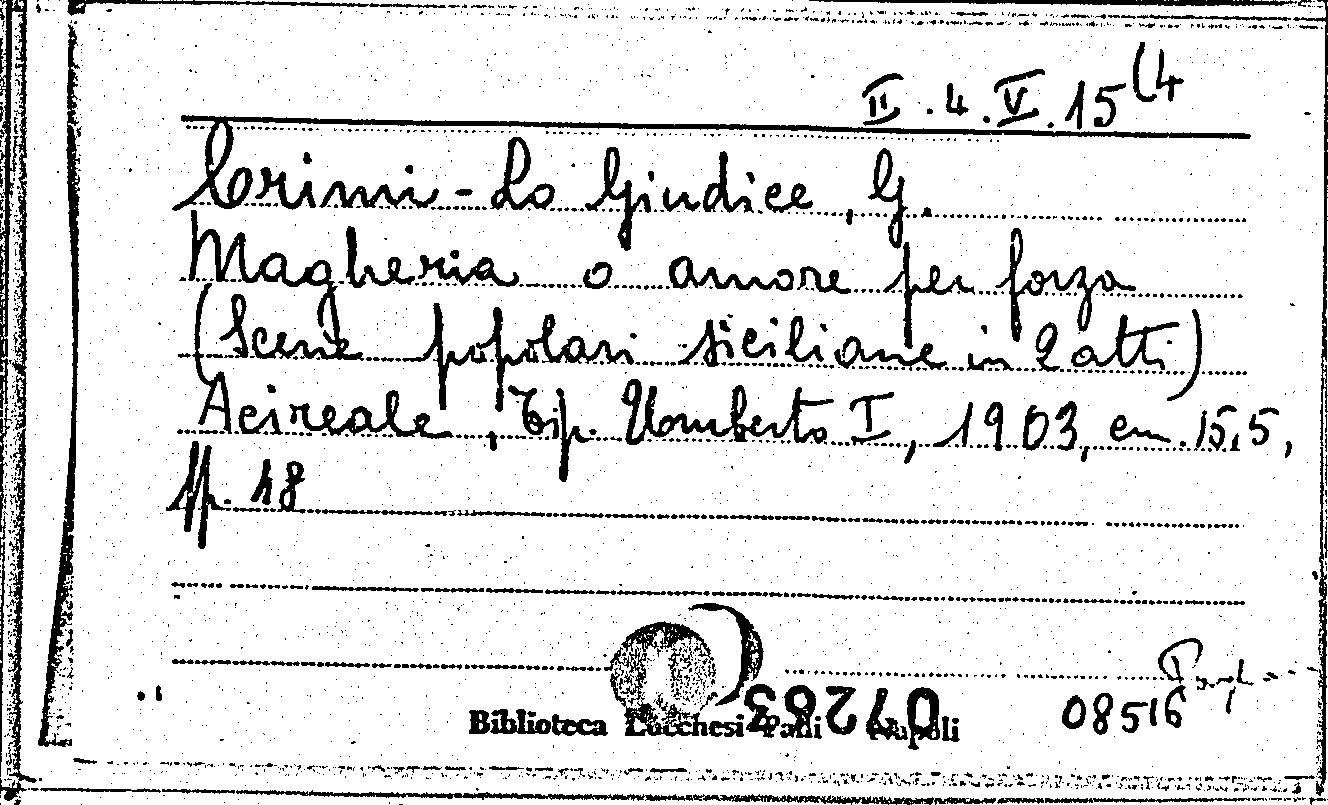 II.4.V.15(4
Crimi-Lo Giudice, G.
Magheria o amore per forza
(Scene popolari siciliane in 2 atti)
Acireale, Tip. Umberto I, 1903, cm. 15,5,
pp. 18
07263
Biblioteca Lucchesi-Palli Napoli
08516